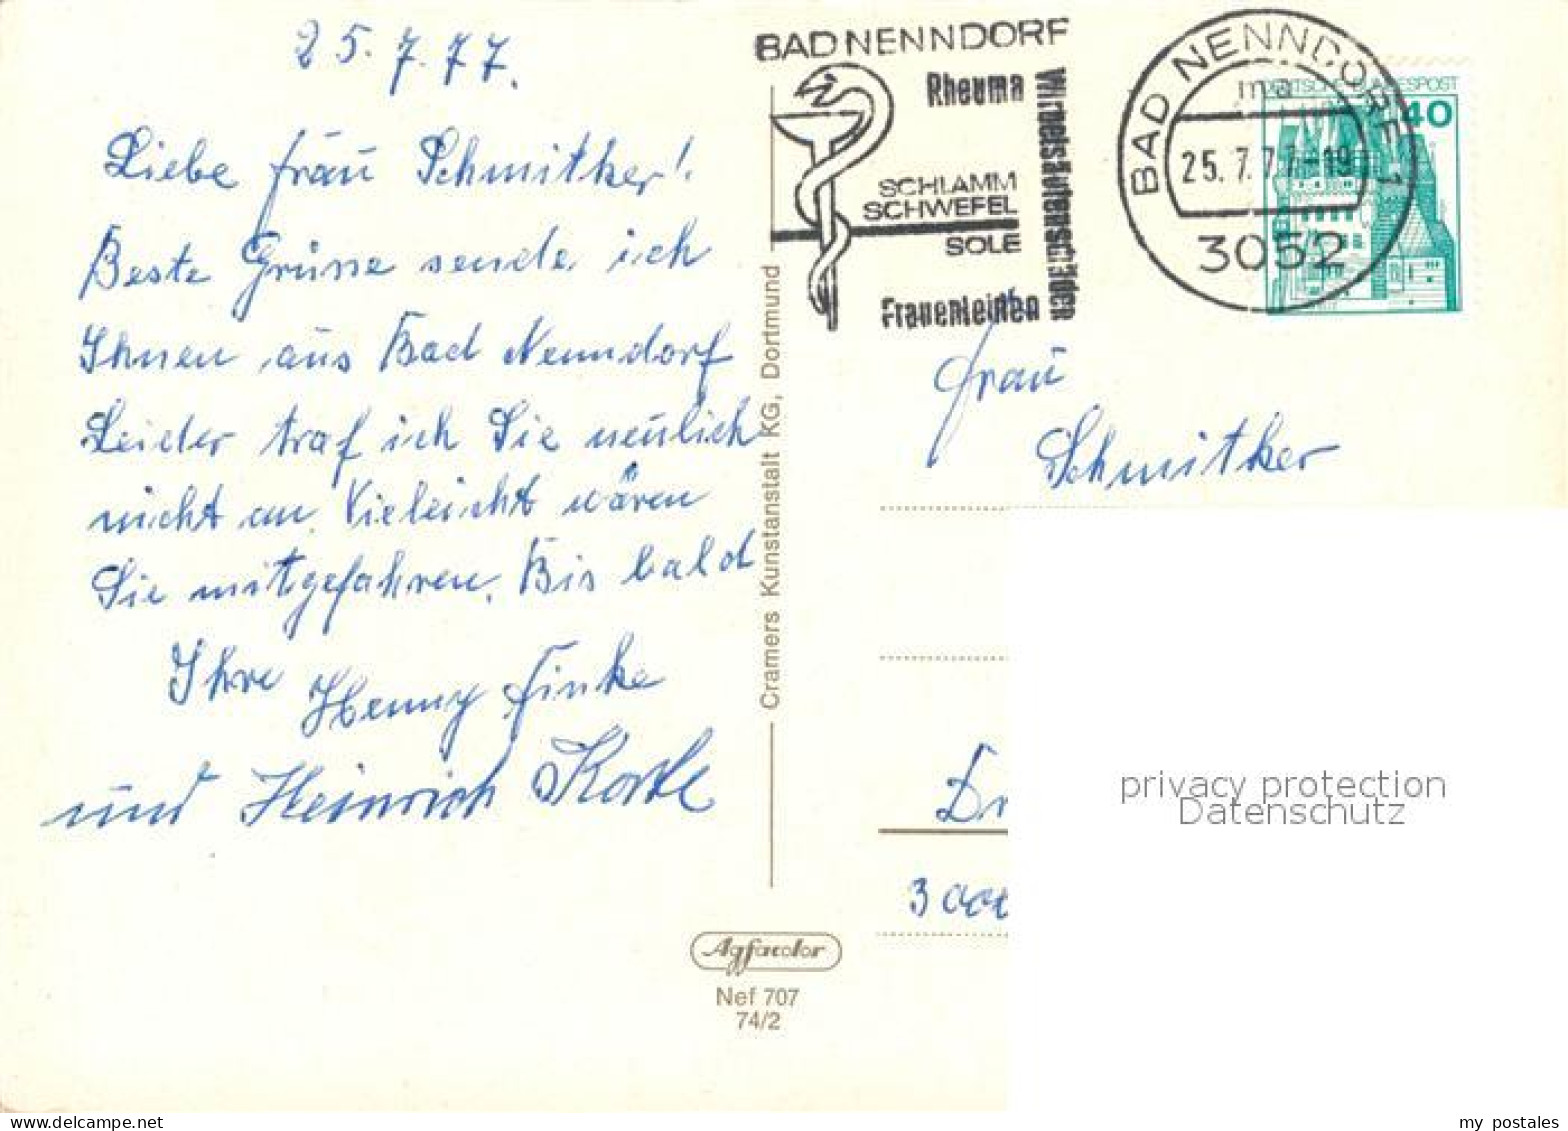 25.7.77.
Liebe Frau Schmitker!
Beste Grüsse sende ich
Ihnen aus Bad Nenndorf
Leider traf ich Sie neulich
nicht an. Vieleicht wären
Sie mitgefahren. Bis bald
Ihre Henny Finke
und Heinrich
BAD NENNDORF
Rheuma
SCHLAMM
SCHWEFEL
SOLE
Frauenleiden
Wirbelsäulenschäden
BAD NENNDORF 1
ma
25.7.77-19
3052
DEUTSCHE BUNDESPOST
40
Frau
Schmitker
3000
Cramers Kunstanstalt KG, Dortmund
Agfacolor
Nef 707
74/2
privacy protection
Datenschutz
my postales